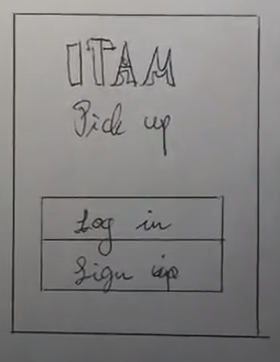 ITAM
Pick up
Log in
Sign up